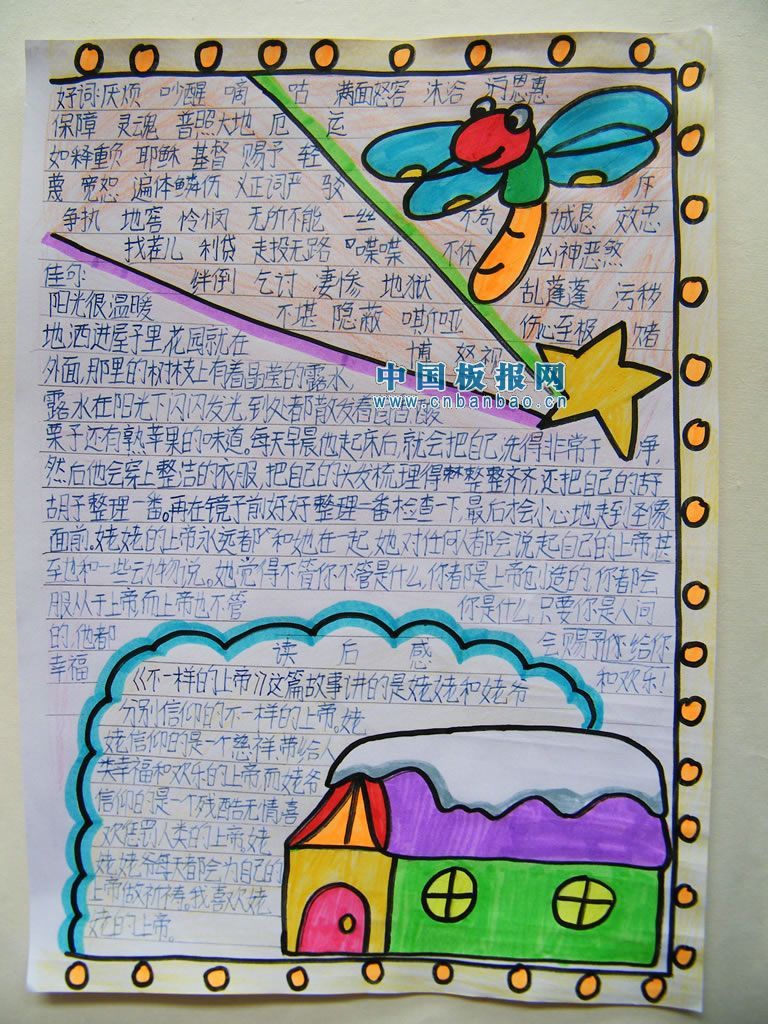 好词:厌烦 吵醒 嘀 咕 满面怒容 沐浴 恩惠
保障 灵魂 普照大地 厄 运
如释重负 耶稣 基督 赐予 轻
蔑 宽恕 遍体鳞伤 义正词严 驳 斥
争执 地窖 怜悯 无所不能 一丝 不苟 诚恳 效忠
找茬儿 利贷 走投无路 喋喋 不休 凶神恶煞
佳句: 绊倒 乞讨 凄惨 地狱 乱蓬蓬 污秽
阳光很温暖 不堪 隐蔽 嘶哑 伤心至极 赌
地洒进屋子里花园就在 博 怒视
外面,那里的树木枝上有着晶莹的露水,
中国板报网
www.cnbanbao.cn
露水在阳光下闪闪发光,到处都散发着
栗子还有熟苹果的味道。每天早晨他起床后,就会把自己洗得非常干 净,
然后他会穿上整洁的衣服,把自己的头发梳理得整整齐齐,还把自己的
胡子整理一番。再在镜子前好好整理一番检查一下,最后才会小心地走到圣像
面前。姥姥的上帝永远都和她在一起,她对任何人都会说起自己的上帝甚
至也和一些动物说。她觉得不管你不管是什么,你都是上帝创造的,你都会
服从于上帝而上帝也不管 你是什么,只要你是人间
的,他都 会赐予你给你
幸福 和欢乐!
读后感
《不一样的上帝》这篇故事讲的是姥姥和姥爷
分别信仰的不一样的上帝。姥
姥信仰的是一个慈祥,带给人
类幸福和欢乐的上帝而姥爷
信仰的是一个残酷无情,喜
欢惩罚人类的上帝,姥
姥姥爷每天都会为自己的
上帝做祈祷。我喜欢姥
姥的上帝。